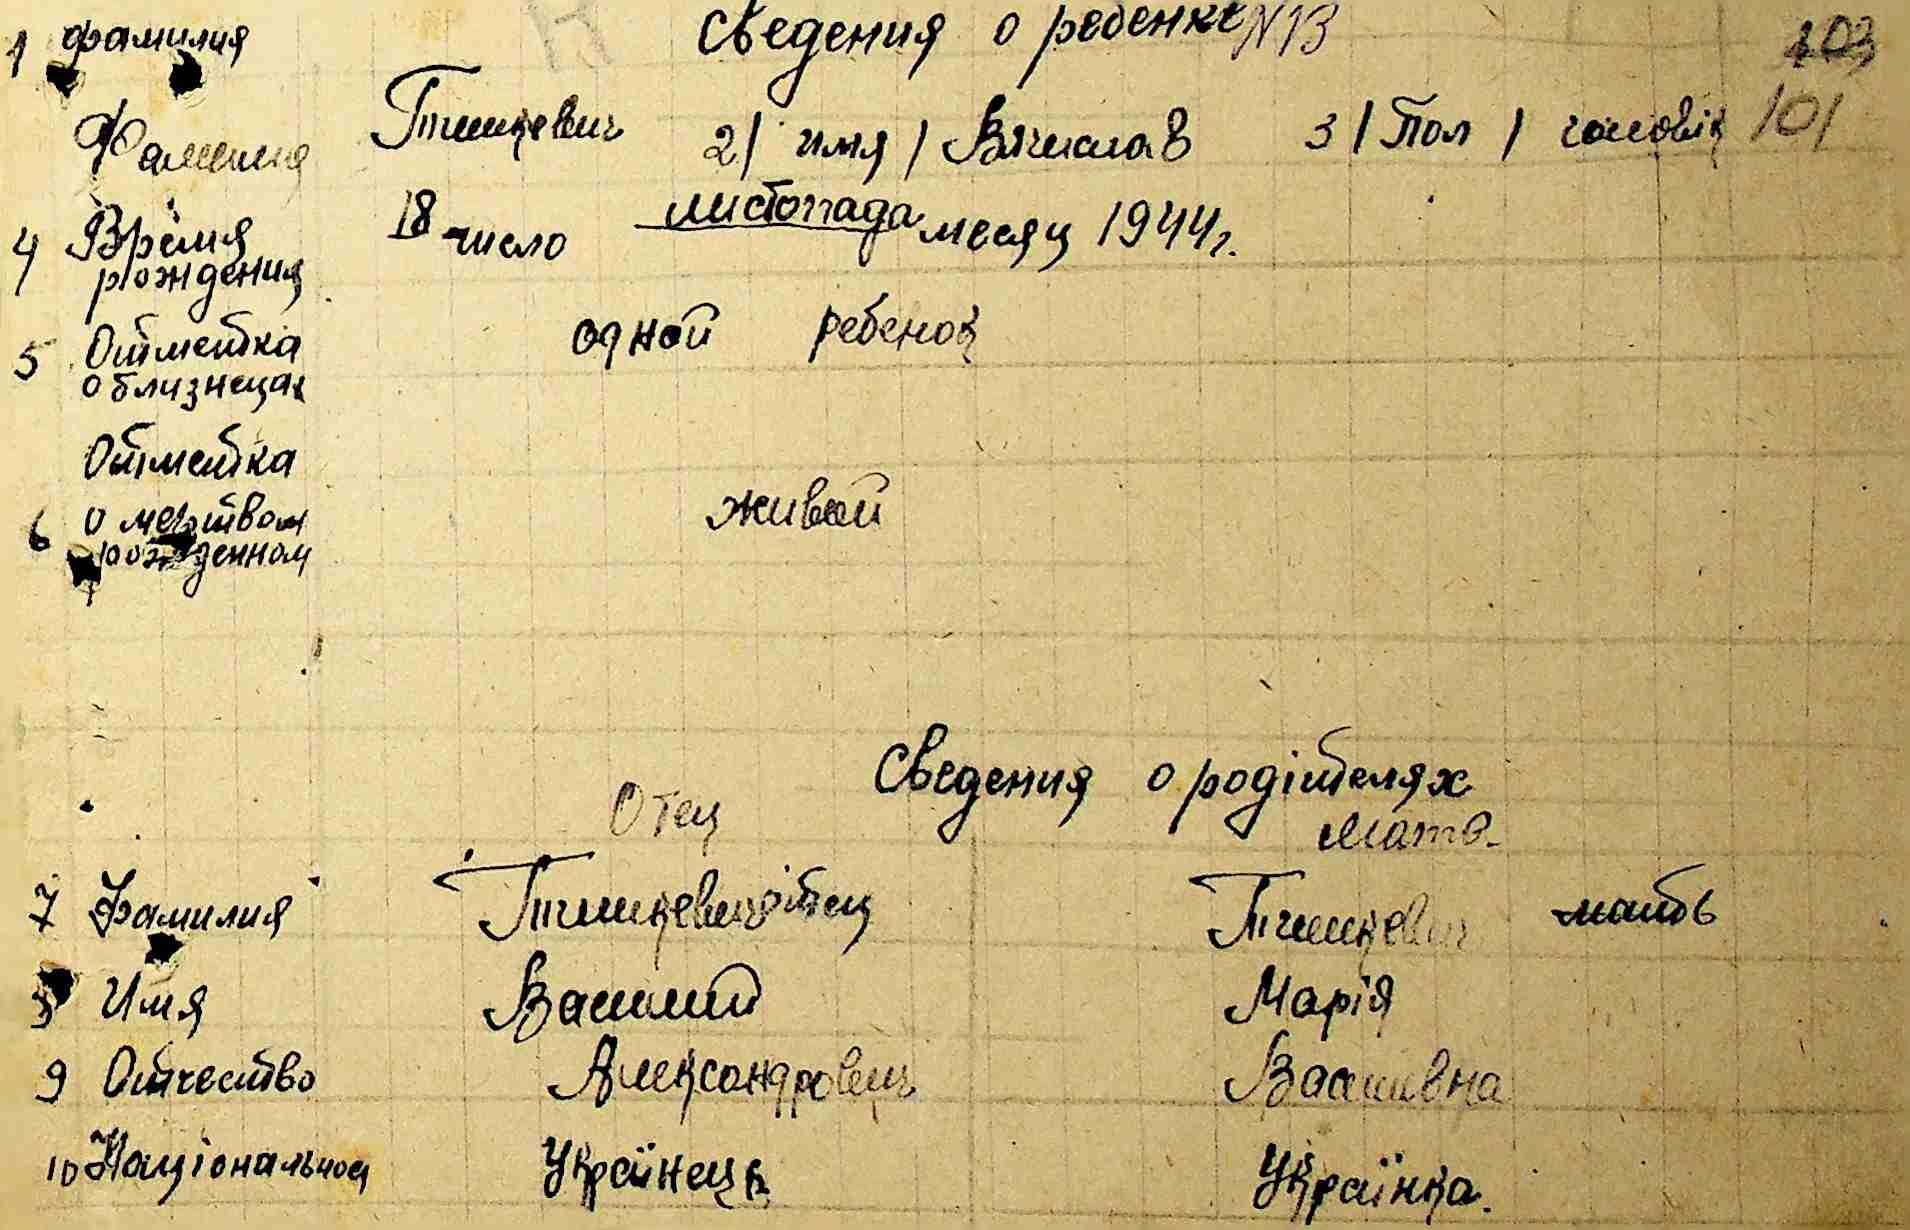 Сведения о ребенке N13
1 фамилия
103
Фамилия Тишкевич 2/ имя / Вячислав 3 / Пол / чоловік 101
4 Время рождения 18 число листопада месяц 1944 г.
5 Отметка о близнецах одной ребенок
Отметка
6 о мертвом рожденном живой
Сведения о родітелях
Отец Мать
7 Фамилия Тишкевич отец Тишкевич мать
8 Имя Василий Марія
9 Отчество Александрович Василивна
10 Національност Українець Українка.